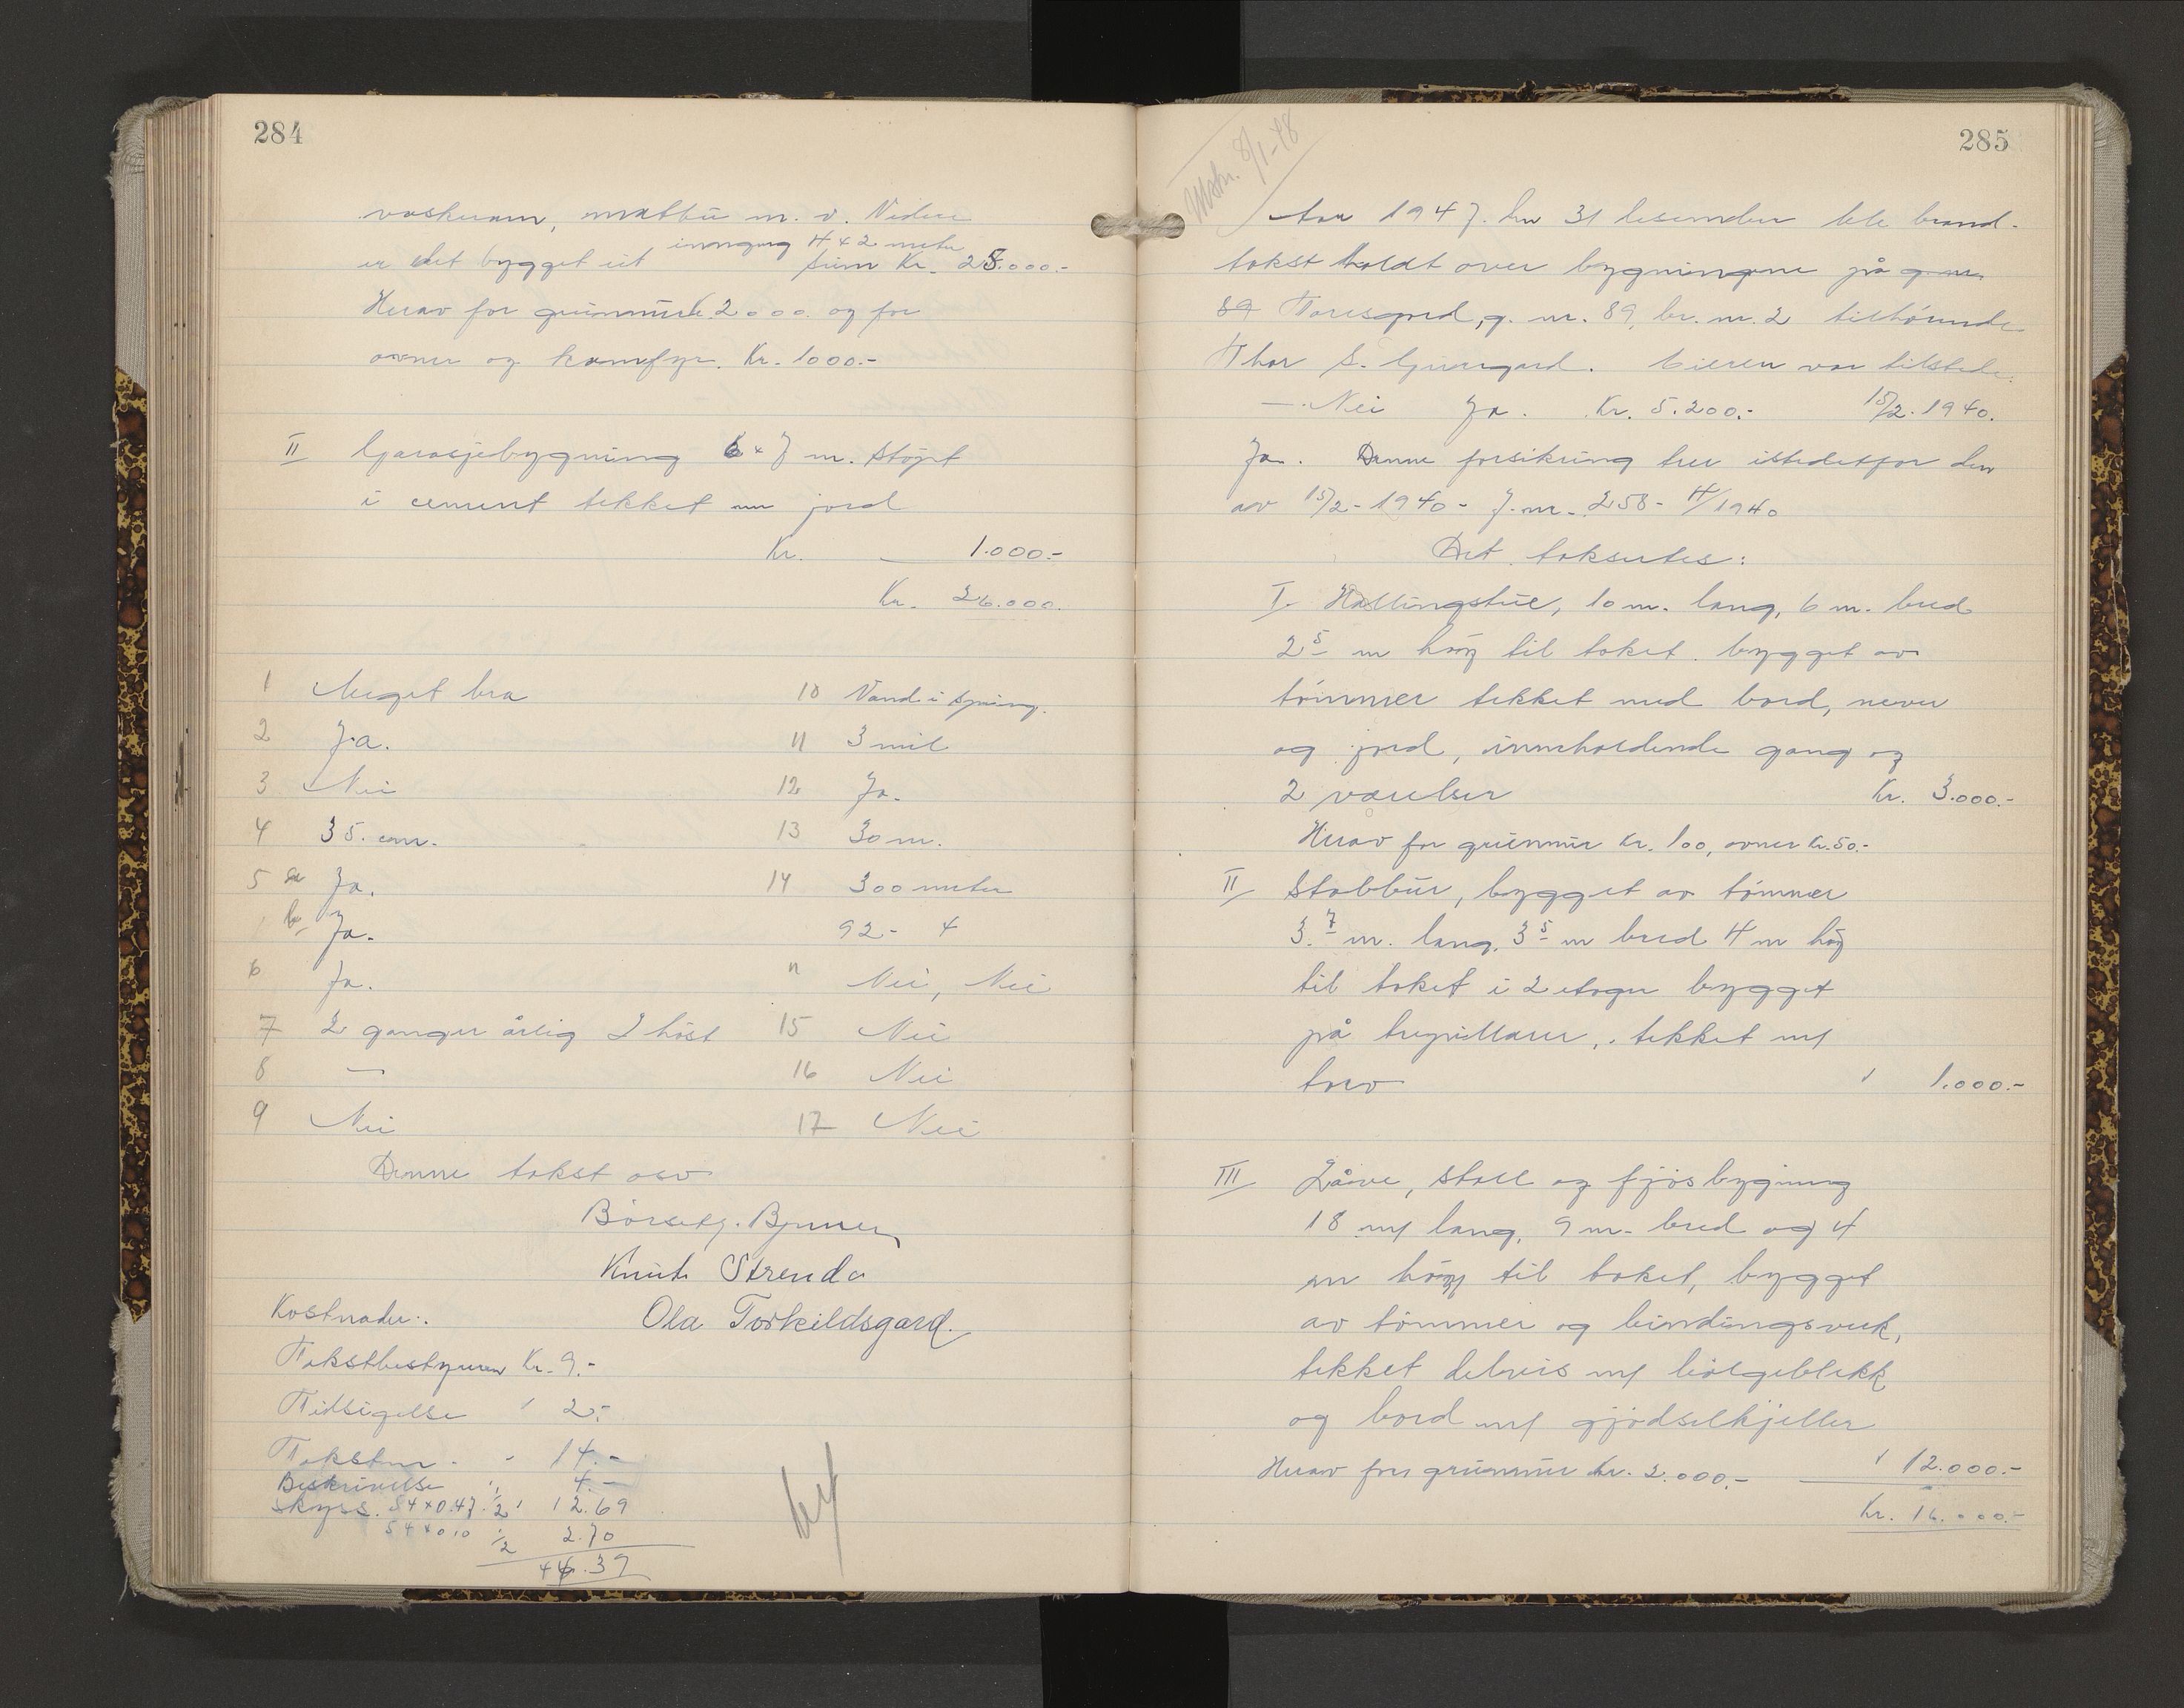 284
vaskerom, matbu m. v. Videre
er det bygget ut inngang 4 x 2 meter
sum Kr. 25.000.-
Herav for grunnmur k. 2000. og for
ovner og komfyr. Kr. 1000.-
II Garasjebygning 6 x 7 m. støpt
i cement tekket m jord
Kr. 1.000.-
Kr. 26.000.
1 Meget bra
2 Ja.
3 Nei
4 35. cm.
5 a Ja.
b Ja.
6 Ja.
7 2 ganger årlig I høst
8 —
9 Nei
10 Vand i spring.
11 3 mil
12 Ja.
13 30 m.
14 300 meter
92- 4
" Nei, Nei
15 Nei
16 Nei
17 Nei
Denne takst osv
Knut Strenda
Ola Torkildsgard.
Kostnader:.
Takstbestyreren Kr. 9.-
Tilsigelse " 2.-
Takstm. - 14.-
Beskrivelse " 4.-
Skyss. 54 x 0.47. 1/2 " 12.69
54 x 0 10 1/2 2.70
44.39
285
8/1-48
Aar 1947. den 31 desember ble brand-
takst holdt over bygningene på g. nr.
89 Toresgard, g. nr. 89, br. nr. 2 tilhørende
Thor S. Gjuvgard. Eieren var tilstede.
— Nei Ja. Kr. 5.200.- 15/2. 1940.
Ja. Denne forsikring trer istedetfor den
av 15/2-1940- J. nr. 258- 4/1940
Det taksertes:
I. Hallingstue, 10 m. lang, 6 m. bred
2 5 m høy til taket. bygget av
tømmer tekket med bord, never
og jord, inneholdende gang og
2 værelser Kr. 3.000.-
Herav for grunnmur Kr. 100, ovner Kr. 50.-
II Stabbur, bygget av tømmer
3. 7 m. lang, 3 5 m bred 4 m høy
til taket i 2 etager bygget
på trepillarer, tekket m/
torv " 1.000.-
III Låve, stall og fjøsbygning
18 m/ lang, 9 m. bred og 4
m høy til taket, bygget
av tømmer og bindingsverk,
tekket delvis m/ bølgeblikk
og bord m/ gjødselkjeller
Herav for grunnmur Kr. 2.000.- " 12.000.-
Kr. 16.000.-